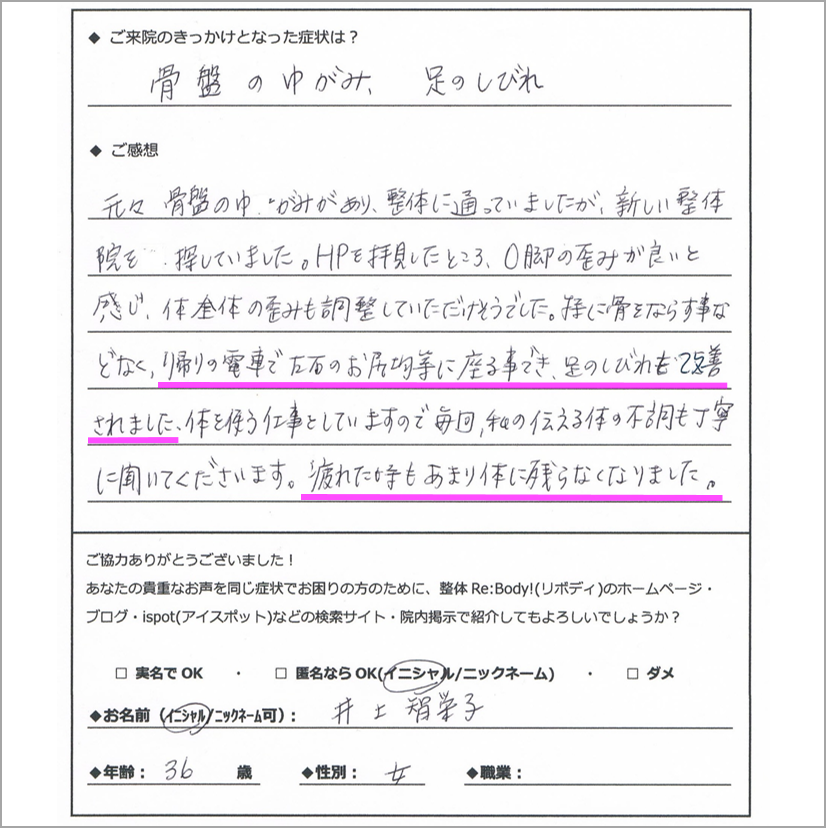 ◆ ご来院のきっかけとなった症状は？
骨盤のゆがみ、 足のしびれ
◆ ご感想
元々 骨盤のゆがみがあり、整体に通っていましたが、新しい整体
院を 探していました。HPを拝見したところ、O脚の歪みが良いと
感じ、体全体の歪みも調整していただけそうでした。特に骨をならす事な
どなく、帰りの電車で左右のお尻均等に座る事でき、足のしびれも改善
されました、体を使う仕事としていますので毎回、私の伝える体の不調も丁寧
に聞いてくださいます。疲れた時もあまり体に残らなくなりました。
ご協力ありがとうございました！
あなたの貴重なお声を同じ症状でお困りの方のために、整体 Re:Body!(リボディ)のホームページ・
ブログ・ispot(アイスポット)などの検索サイト・院内掲示で紹介してもよろしいでしょうか？
□ 実名で OK ・ □ 匿名なら OK(イニシャル/ニックネーム) ・ □ ダメ
◆お名前（イニシャル/ニックネーム可）： 井上 智栄子
◆年齢： 36 歳 ◆性別： 女 ◆職業：